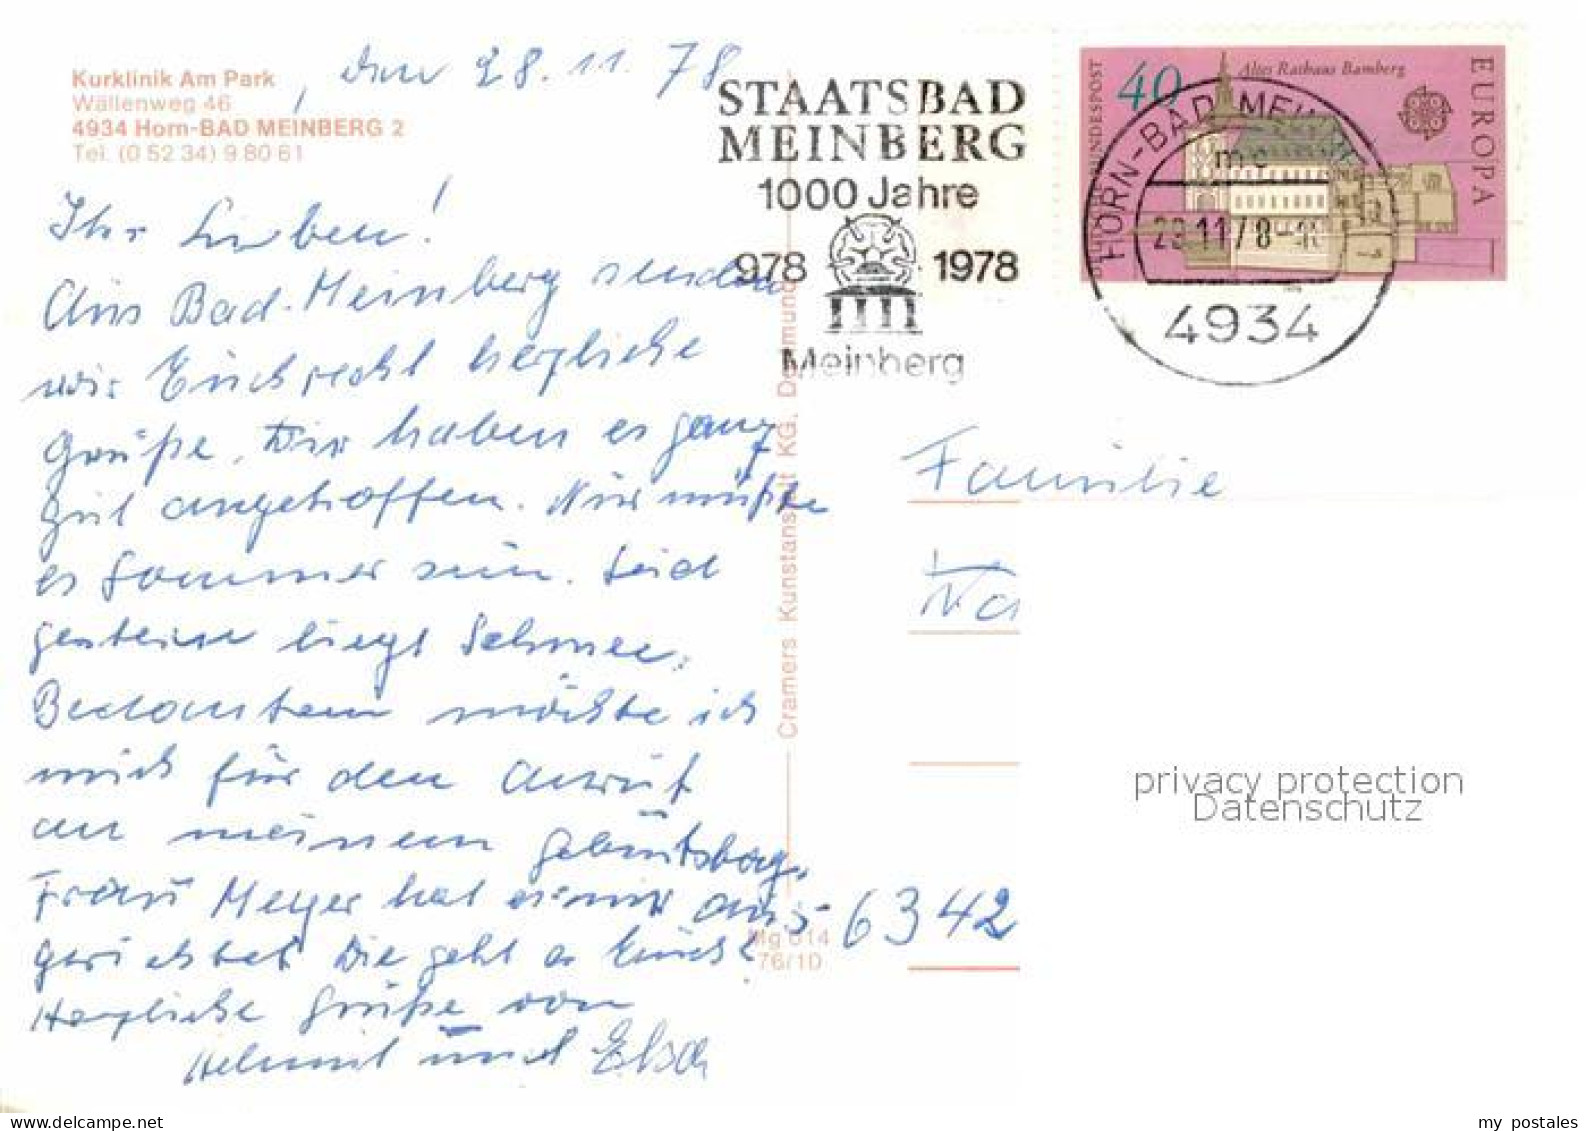 Kurklinik Am Park
Wällenweg 46
4934 Horn-BAD MEINBERG 2
Tel. (0 52 34) 9 80 61
, den 28.11.78
Ihr Lieben!
Aus Bad-Meinberg senden
wir Euch recht herzliche
Grüße. Wir haben es ganz
gut angetroffen. Nur müßte
es Sommer sein. Seid
gestern liegt Schnee.
Bedanken möchte ich
mich für den Anruf
an meinem Geburtstag.
Frau Meyer hat es mir aus-
gerichtet. Wie geht es Euch?
Herzliche Grüße von
Helmut und Elsa
Cramers Kunstanstalt KG, Dortmund
Mg 614
76/10
STAATSBAD
MEINBERG
1000 Jahre
978 1978
Meinberg
40
Altes Rathaus Bamberg
EUROPA
DEUTSCHE BUNDESPOST
HORN-BAD MEIN
mc
29.11.78-
4934
Familie
6342
privacy protection
Datenschutz
my postales